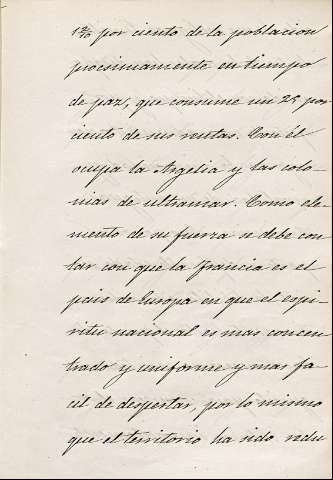 1 2/0 por ciento de la poblacion
procsimamente en tiempo
de paz, que consume un 25 por
ciento de sus rentas. Con él
ocupa la Argelia y las colo-
nias de ultramar. Como ele-
mento de su fuerza se debe con
tar con que la Francia es el
pais de Europa en que el espi-
ritu nacional es mas concen-
trado y uniforme y mas fa
cil de despertar, por lo mismo
que el territorio ha sido redu